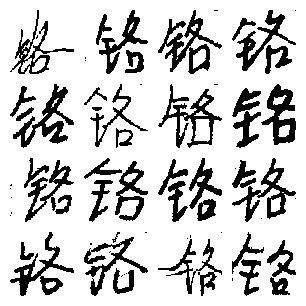 铬 铬 铬 铬
铬 铬 铬 铬
铬 铬 铬 铬
铬 铬 铬 铬